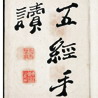 五經手
讀